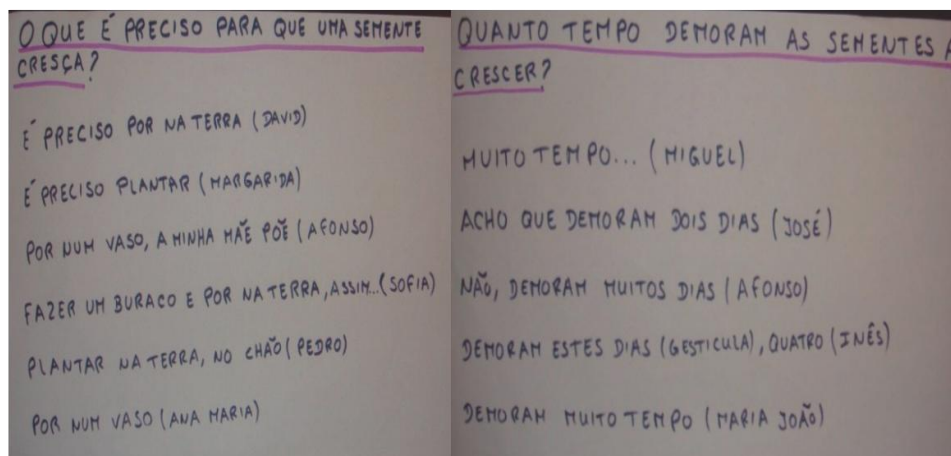 O QUE É PRECISO PARA QUE UMA SEMENTE
CRESÇA?
É PRECISO POR NA TERRA (DAVID)
É PRECISO PLANTAR (MARGARIDA)
POR NUM VASO, A MINHA MÃE PÕE (AFONSO)
FAZER UM BURACO E POR NA TERRA, ASSIM...(SOFIA)
PLANTAR NA TERRA, NO CHÃO (PEDRO)
POR NUM VASO (ANA MARIA)
QUANTO TEMPO DEMORAM AS SEMENTES A
CRESCER?
MUITO TEMPO... (MIGUEL)
ACHO QUE DEMORAM DOIS DIAS (JOSÉ)
NÃO, DEMORAM MUITOS DIAS (AFONSO)
DEMORAM ESTES DIAS (GESTICULA), QUATRO (INÊS)
DEMORAM MUITO TEMPO (MARIA JOÃO)